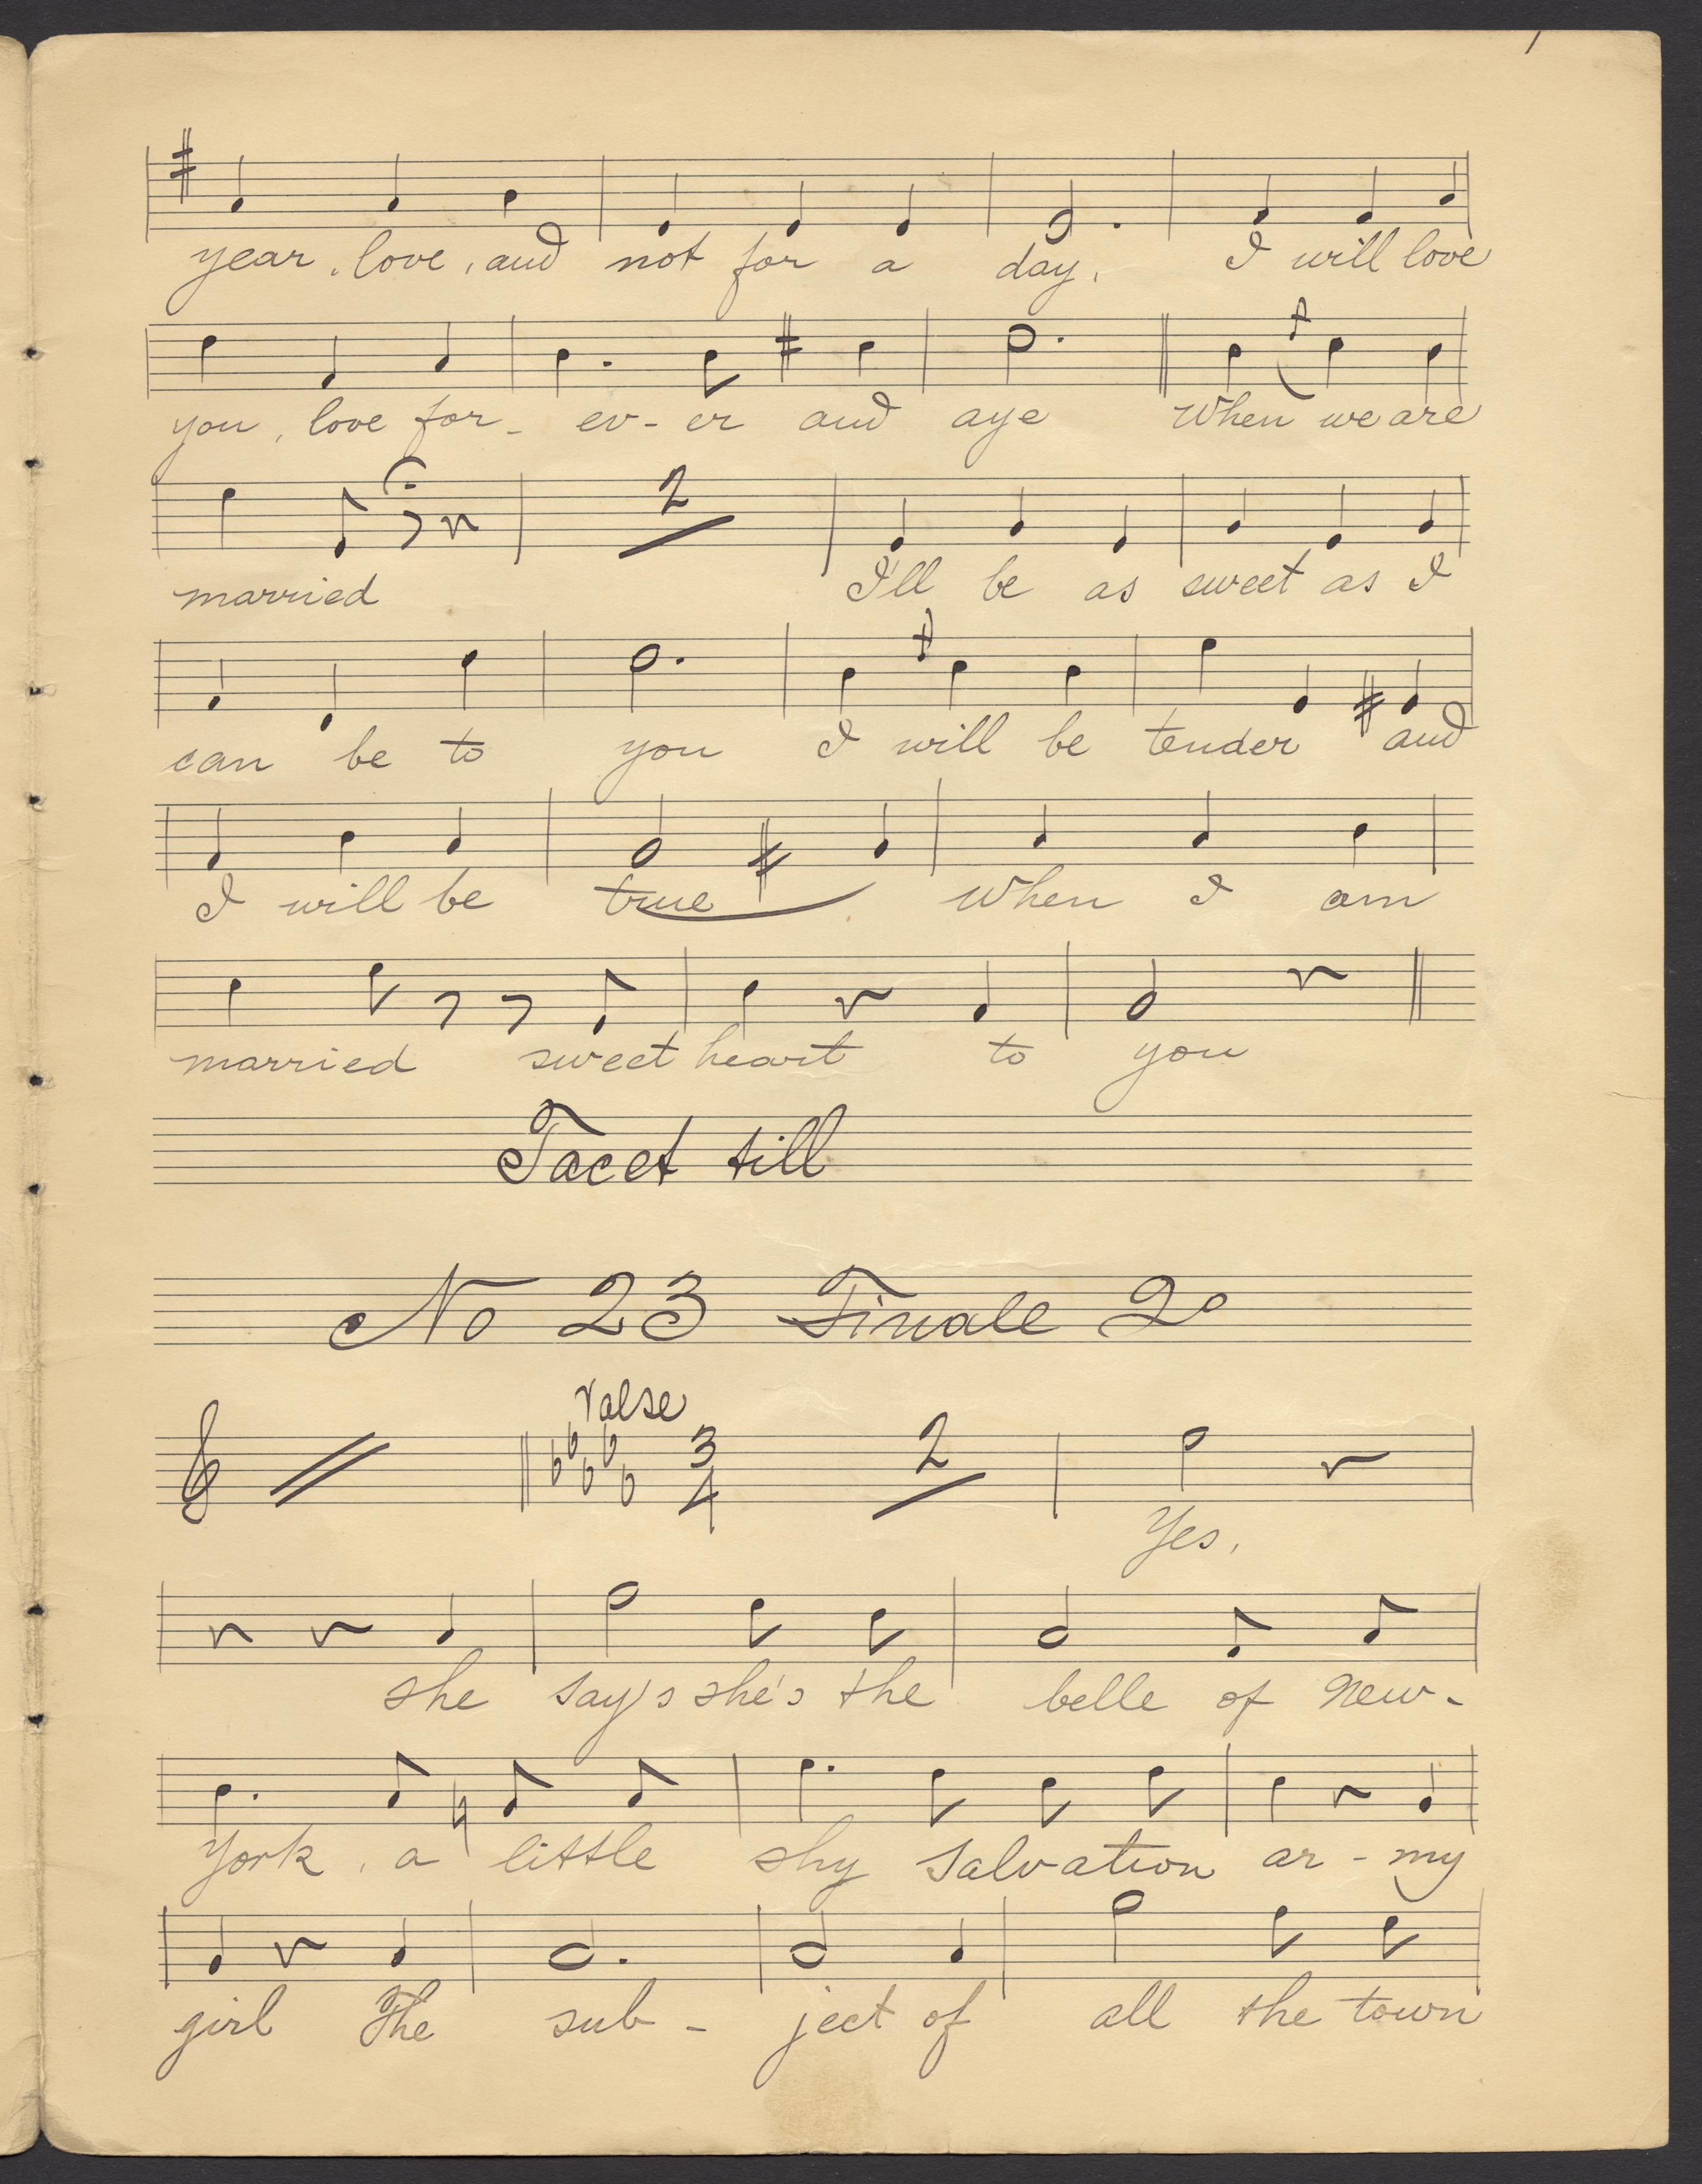 year, love, and not for a day, I will love
you, love for- ev- er and aye When we are
2
married I'll be as sweet as I
can be to you I will be tender and
I will be true When I am
married sweet heart to you
Tacet till
No 23 Finale 2o
Valse
3 4 2
Yes,
she say's she's the belle of New-
York, a little shy Salvation ar-my
girl The sub- ject of all the town